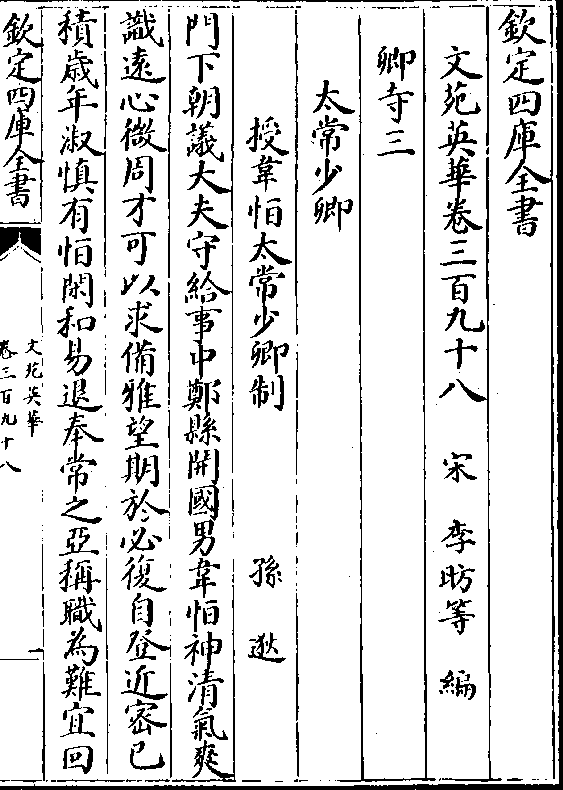 欽定四庫全書
文苑英華卷三百九十八　宋　李昉等　編
卿寺三
太常少卿
授韋怕太常少卿制　孫逖
門下朝議大夫守給事中鄭縣開國男韋怕神清氣爽
識遠心微周才可以求備雅望期於必復自登近密已
積歲年淑慎有怕閑和易退奉常之亞稱職為難宜回
欽定四庫全書
文苑英華
卷三百九十八
一